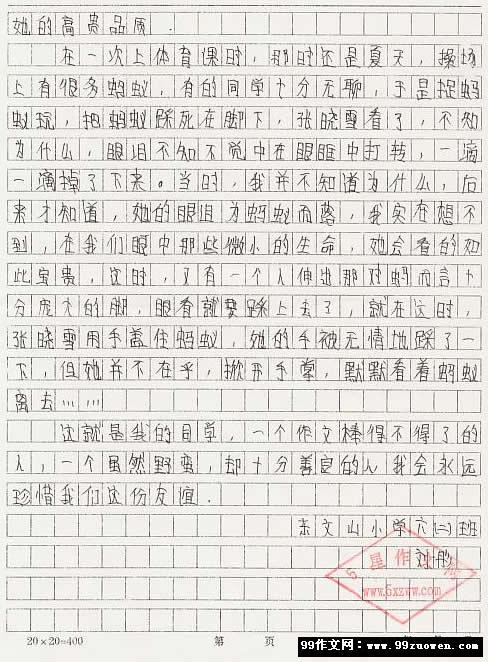 她的高贵品质.
在一次上体育课时，那时还是夏天，操场
上有很多蚂蚁，有的同学十分无聊，于是捉蚂
蚁玩，把蚂蚁踩死在脚下，张晓雪看了，不知
为什么，眼泪不知不觉中在眼眶中打转，一滴
一滴掉了下来。当时，我并不知道为什么，后
来才知道，她的眼泪为蚂蚁而落，我实在想不
到，在我们眼中那些微小的生命，她会看的如
此宝贵，这时，又有一个人伸出那对蚂而言十
分庞大的脚，眼看就要踩上去了，就在这时，
张晓雪用手盖住蚂蚁，她的手被无情地踩了一
下，但她并不在乎，掀开手掌，默默看着蚂蚁
离去……
这就是我的同学，一个作文棒得不得了的
人，一个虽然野蛮，却十分善良的人我会永远
珍惜我们这份友谊.
东文山小学六(二)班
5星作文网
www.5xzww.com
20×20=400 第 页
99作文网：www.99zuowen.com